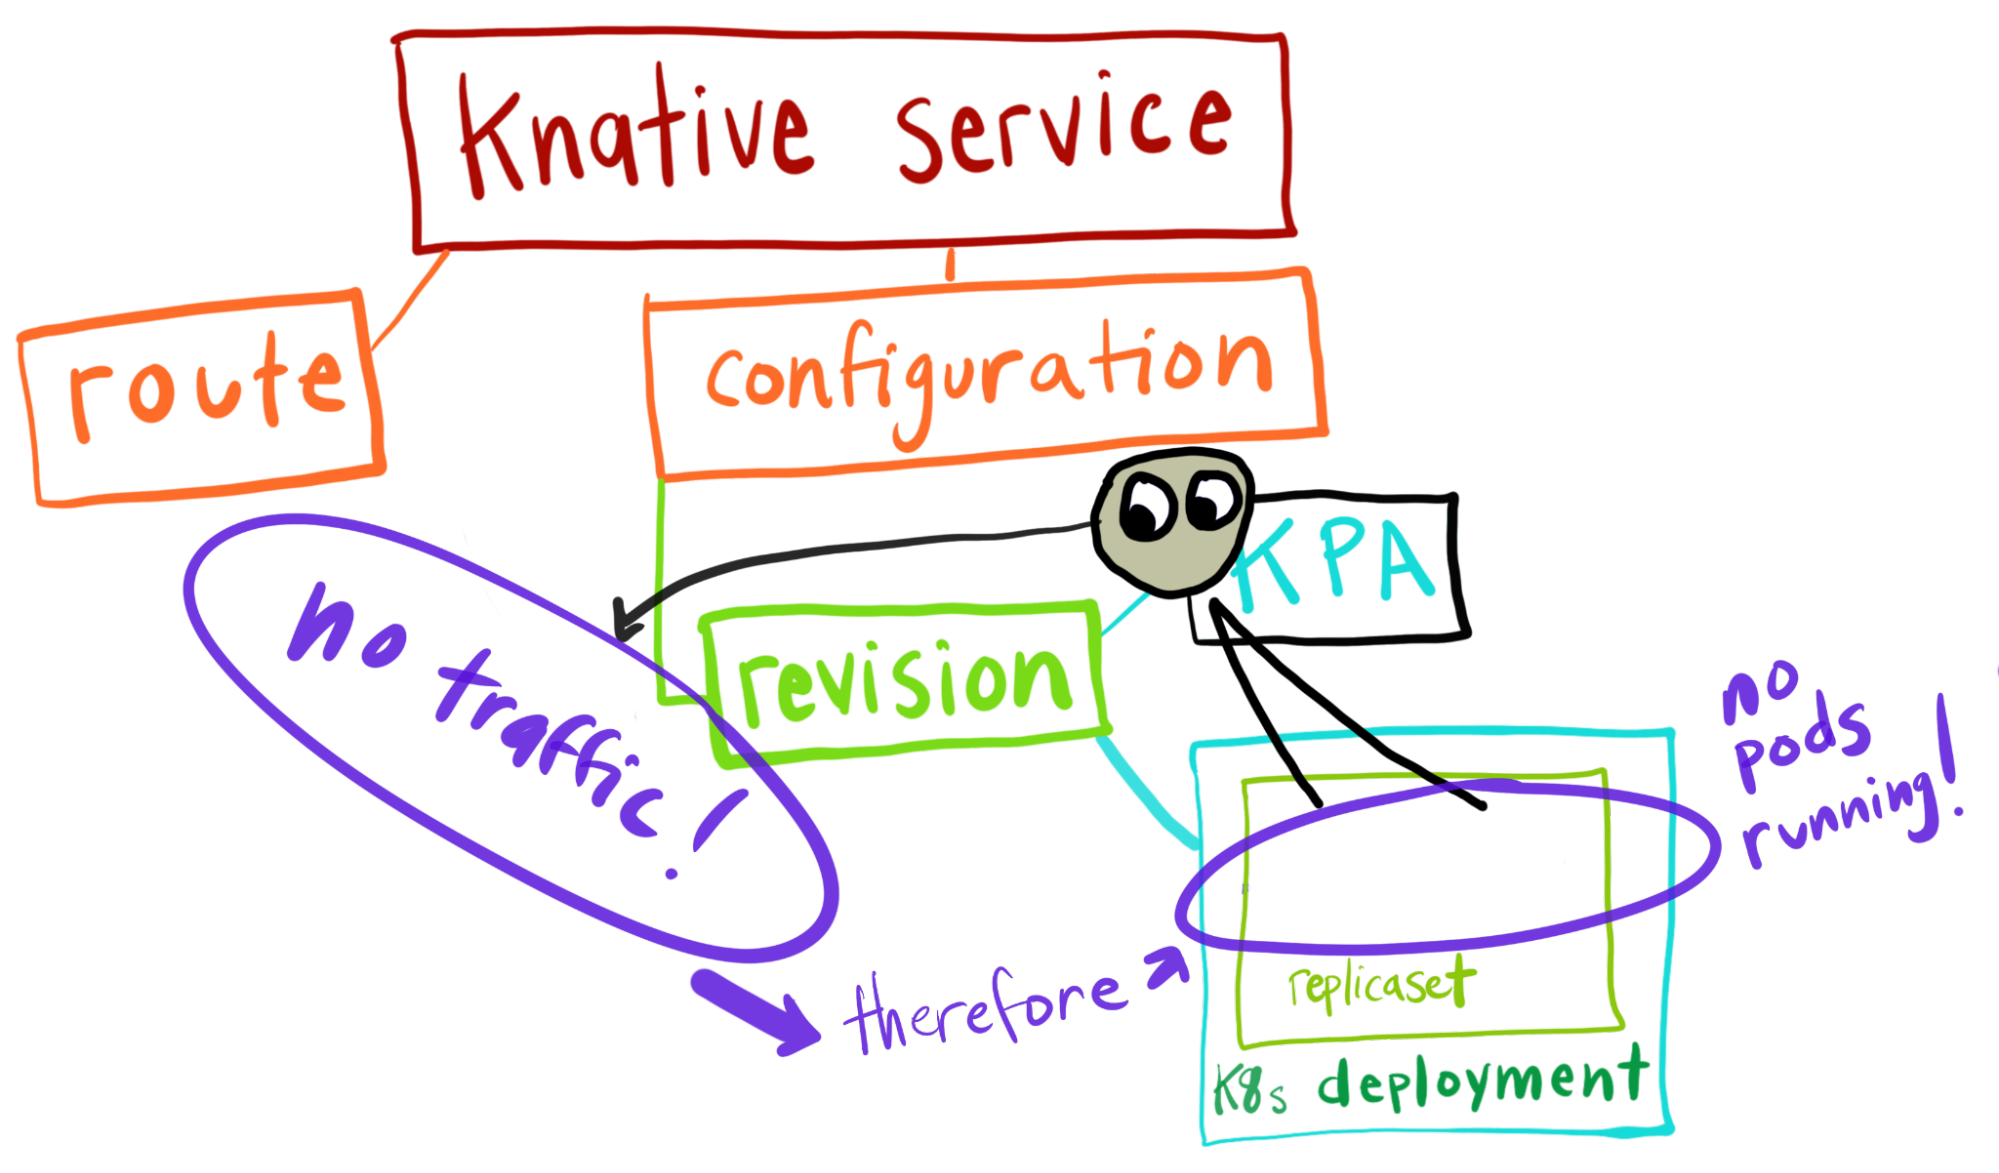 Knative service
route
configuration
KPA
revision
no traffic!
no
pods
running!
therefore
replicaset
K8s deployment